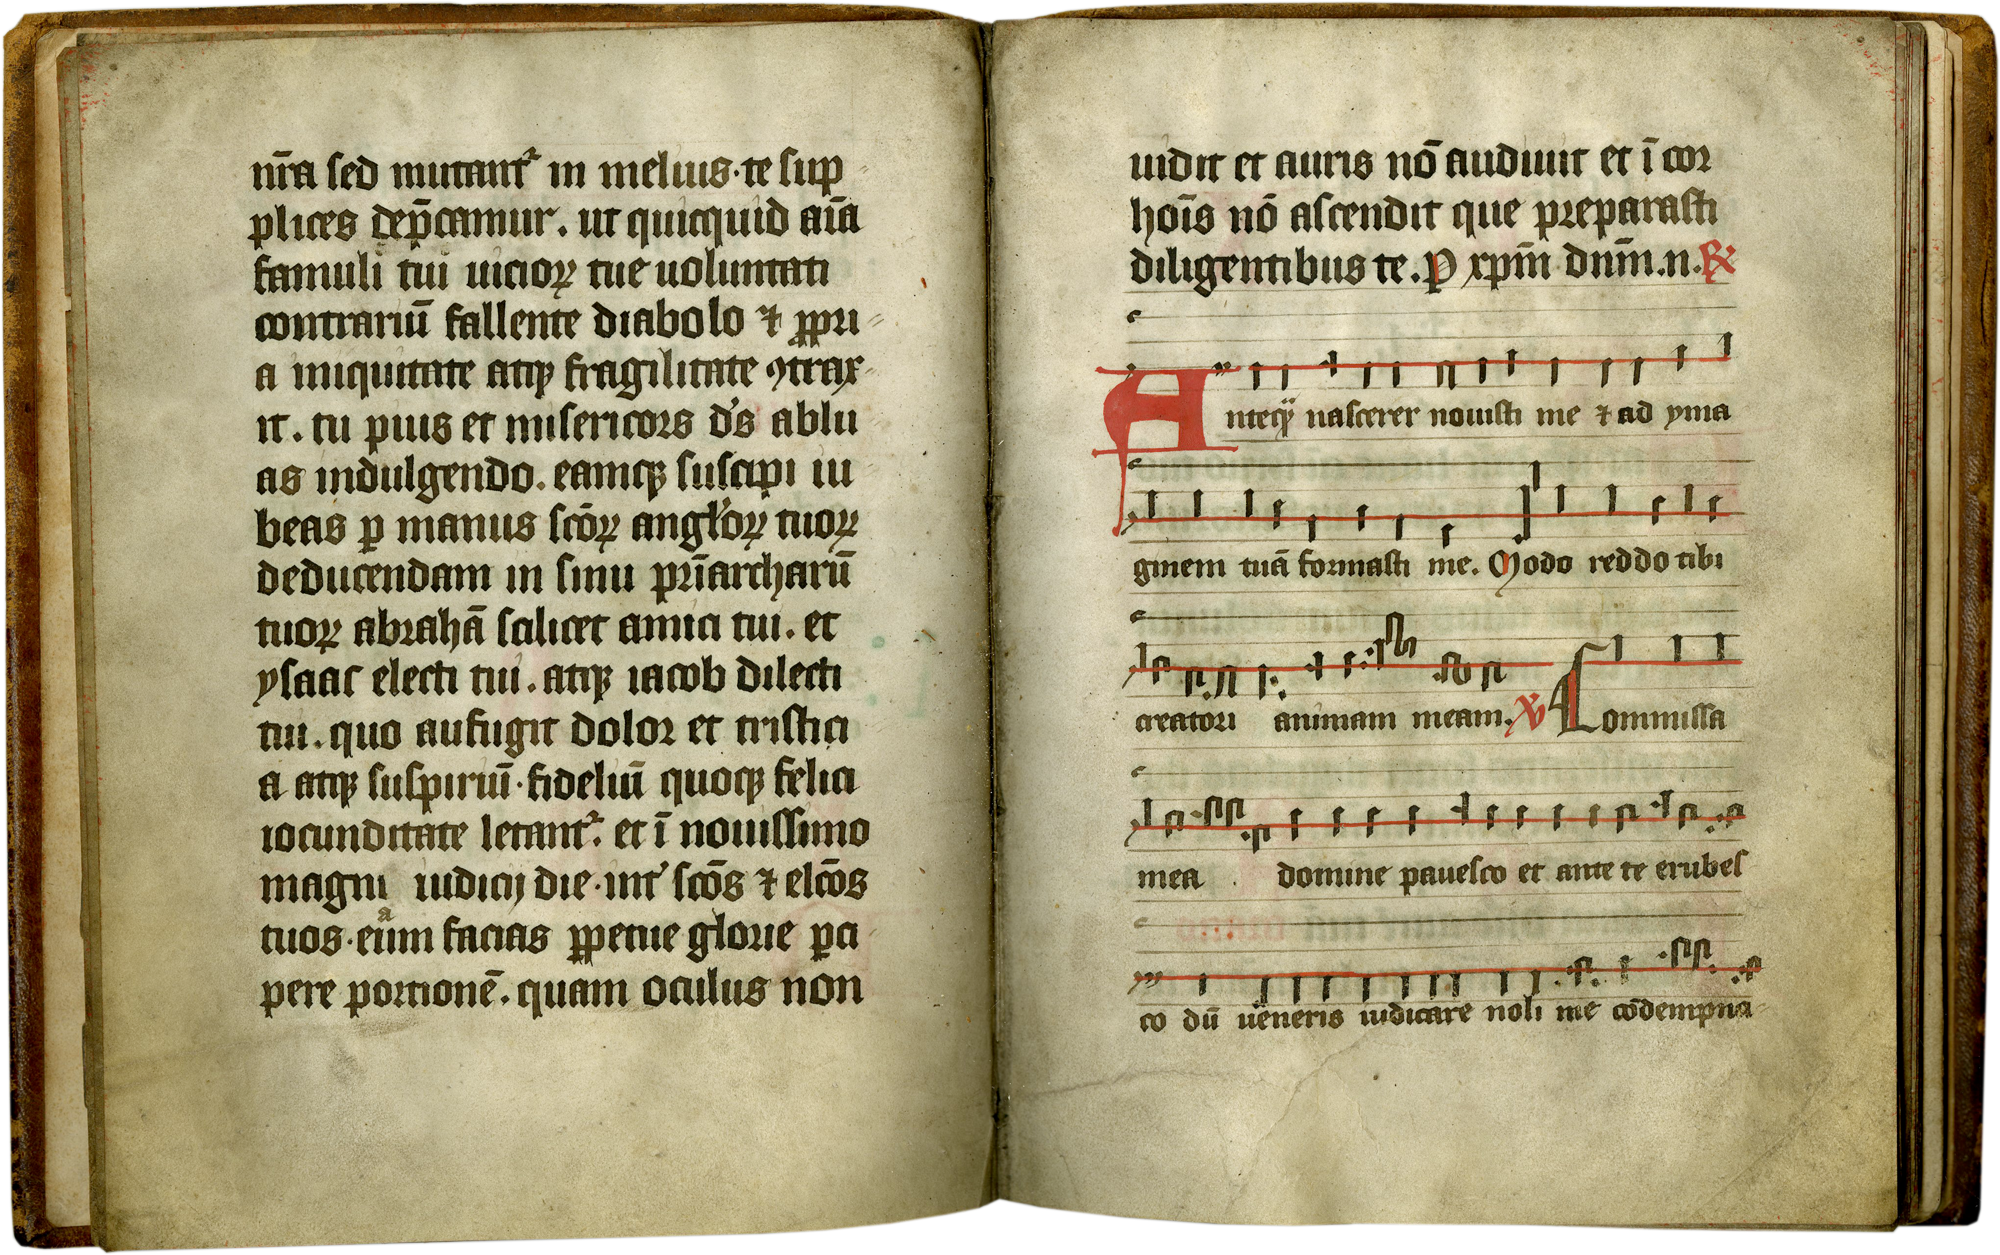 nr̄a sed mutant᷑ in melius · te sup
plices dep̄camur . ut quicquid aīa
famuli tui uicioꝝ tue uoluntati
contrariū fallente diabolo ⁊ ꝓpri
a iniquitate atqꝫ fragilitate ꝯtrax
it . tu pius et misericors d's ablu
as indulgendo . eamqꝫ suscipi iu
beas ꝑ manus scōꝝ angl'oꝝ tuoꝝ
deducendam in sinu pr̄iarcharū
tuoꝝ abrahā scilicet amici tui . et
ysaac electi tui . atqꝫ iacob dilecti
tui . quo aufugit dolor et tristici
a atqꝫ suspiriū · fideliū quoqꝫ felici
iocunditate letant᷑ . et ī nouissimo
magni iudicij die · int' scōs ⁊ elcōs
tuos · eūm facias ꝑpetue glorie ꝑci
pere portionē . quam oculus non
uidit et auris nō audiuit et ī cor
hoīs nō ascendit que preparasti
diligentibus te . P xp̄m dnm̄ . n . ℟
Anteqͣ nascerer nouisti me ⁊ ad yma
ginem tuā formasti me . Modo reddo tibi
creatori animam meam . ℣ Commissa
mea domine pauesco et ante te erubes
co dū ueneris iudicare noli me cōdempna